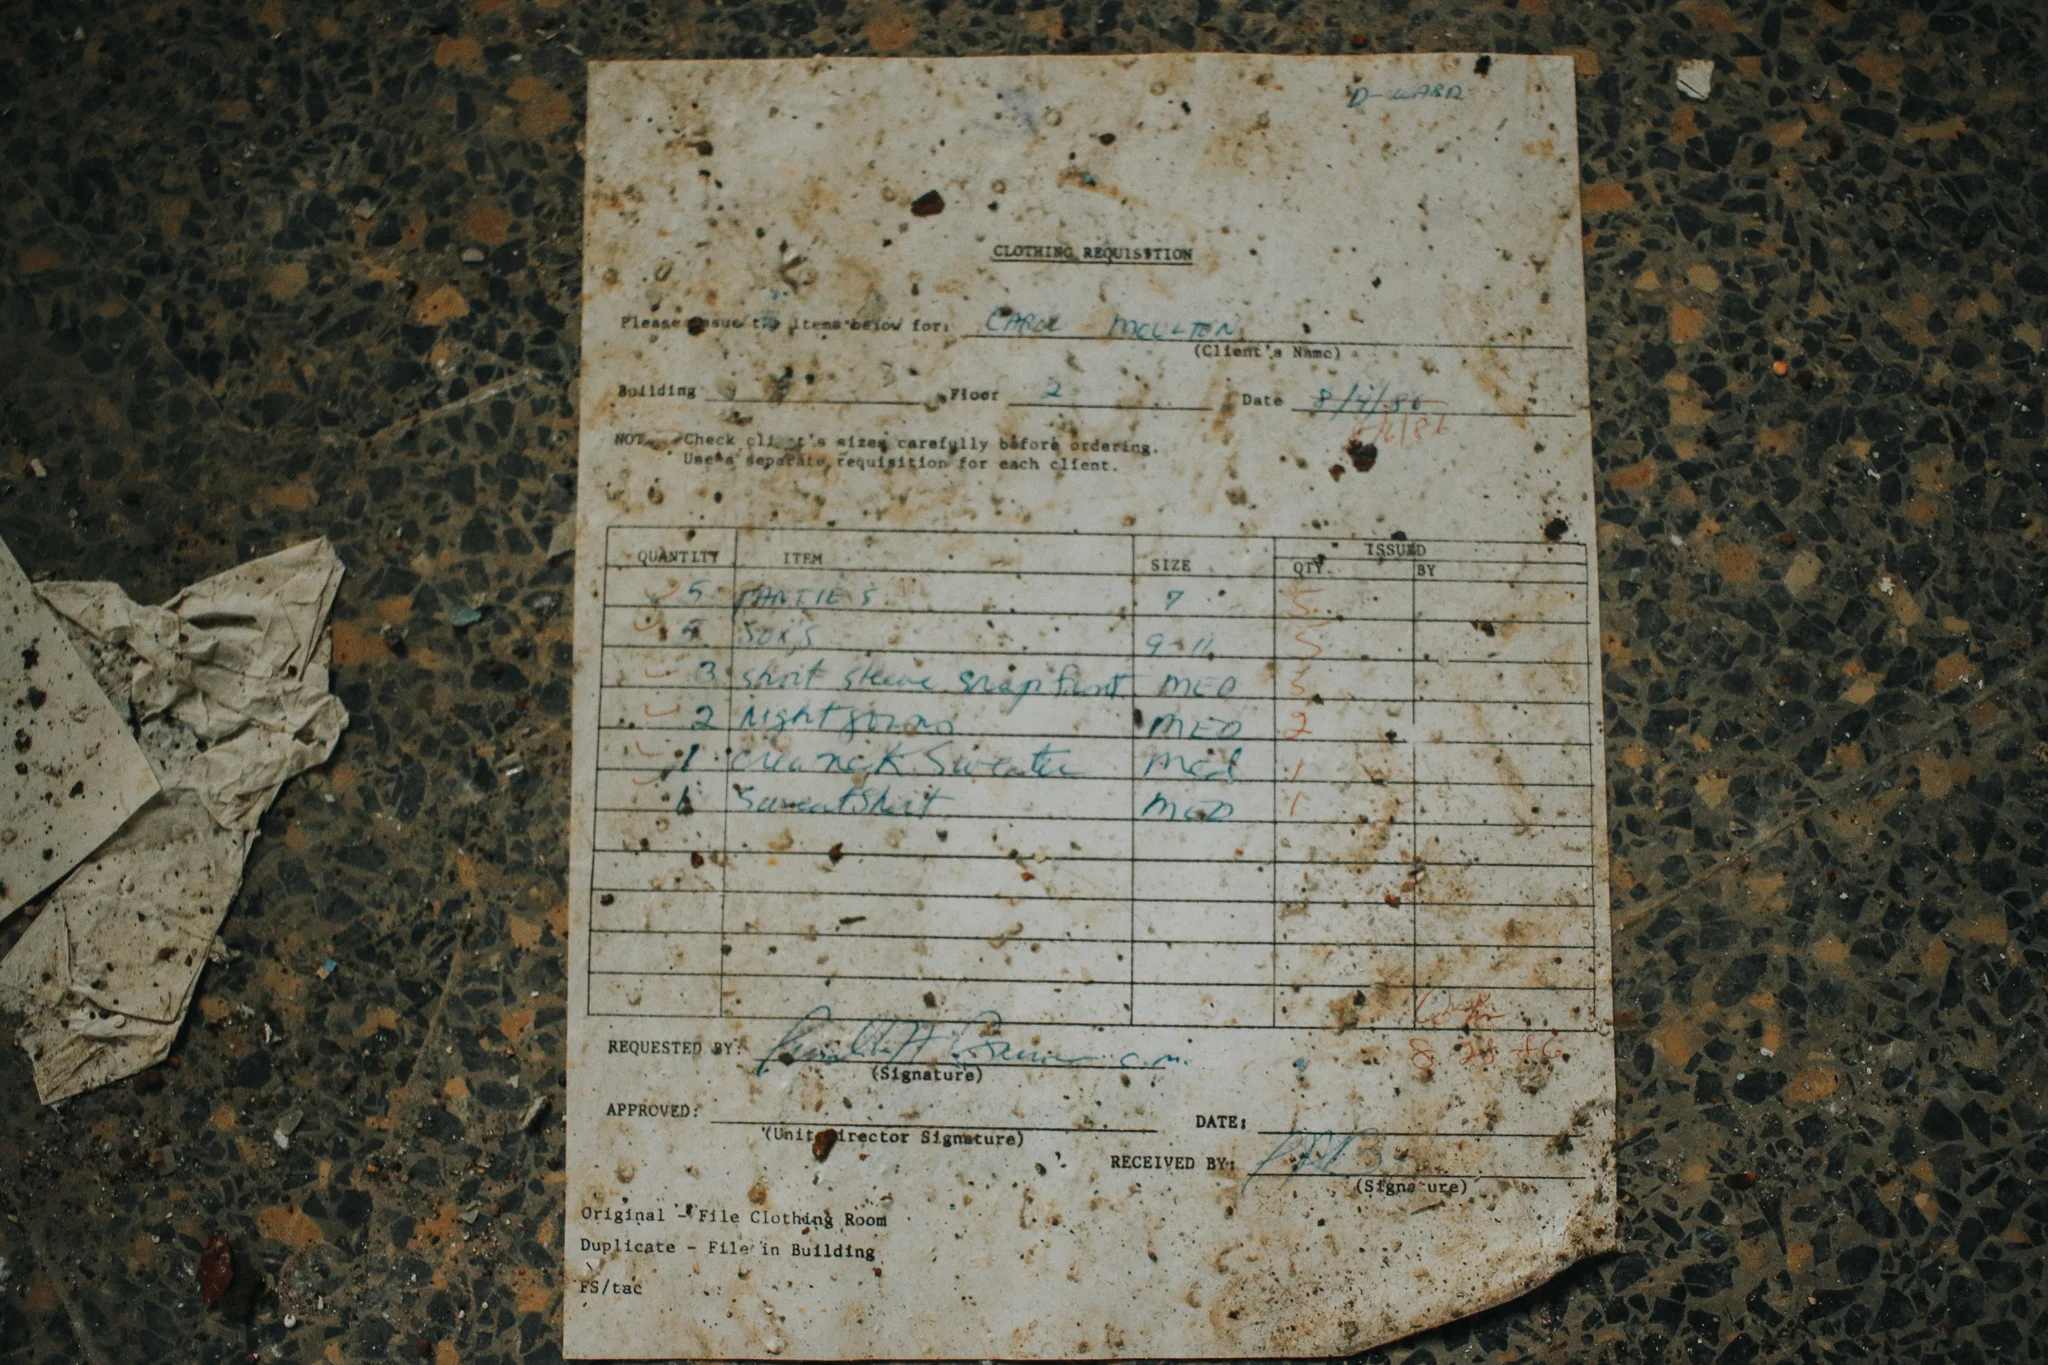 D-WARD
CLOTHING REQUISITION
Please issue the items below for: CAROL MOULTON
(Client's Name)
Building Floor 2 Date 8/4/86
8/6/86
NOTE Check client's sizes carefully before ordering.
Use a separate requisition for each client.
QUANTITY ITEM SIZE ISSUED
QTY. BY
5 PANTIES 7 5
5 SOXS 9-11 5
3 short sleeve snap front MED 3
2 Nightgowns MED 2
1 crewneck Sweater Med 1
1 Sweatshirt MED 1
REQUESTED BY: C.M.
(Signature)
8-28-86
APPROVED: DATE:
(Unit Director Signature)
RECEIVED BY:
(Signature)
Original - File Clothing Room
Duplicate - File in Building
FS/tac